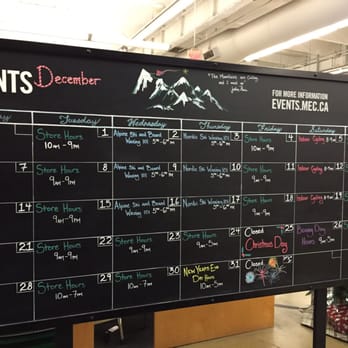 NTS December
"The Mountains are Calling,
and I must go"
John Muir
FOR MORE INFORMATION
EVENTS.MEC.CA
Tuesday Wednesday Thursday Friday Saturday
1 Store Hours
10am-9pm
2 Alpine Ski and Board
Waxing 101
3 Nordic Ski Waxing 101
4 Store Hours
5 Indoor Cycling
7
8 Store Hours
9am-9pm
9 Alpine Ski and Board
Waxing 101
10 Nordic Ski Waxing 101
11 Store Hours
9am-9pm
12 Indoor Cycling
14
15 Store Hours
9am-9pm
16 Alpine Ski and Board
Waxing 101
17 Nordic Ski Waxing 101
18 Store Hours
9am-9pm
19 Indoor Cycling
21
22 Store Hours
9am-9pm
23 Store Hours
24 Store Hours
25 Closed
Christmas Day
26 Boxing Day
Hours
28
29 Store Hours
10am-7pm
30 Store Hours
10am-7pm
31 New Years Eve
Day Hours
10am-7pm
Closed